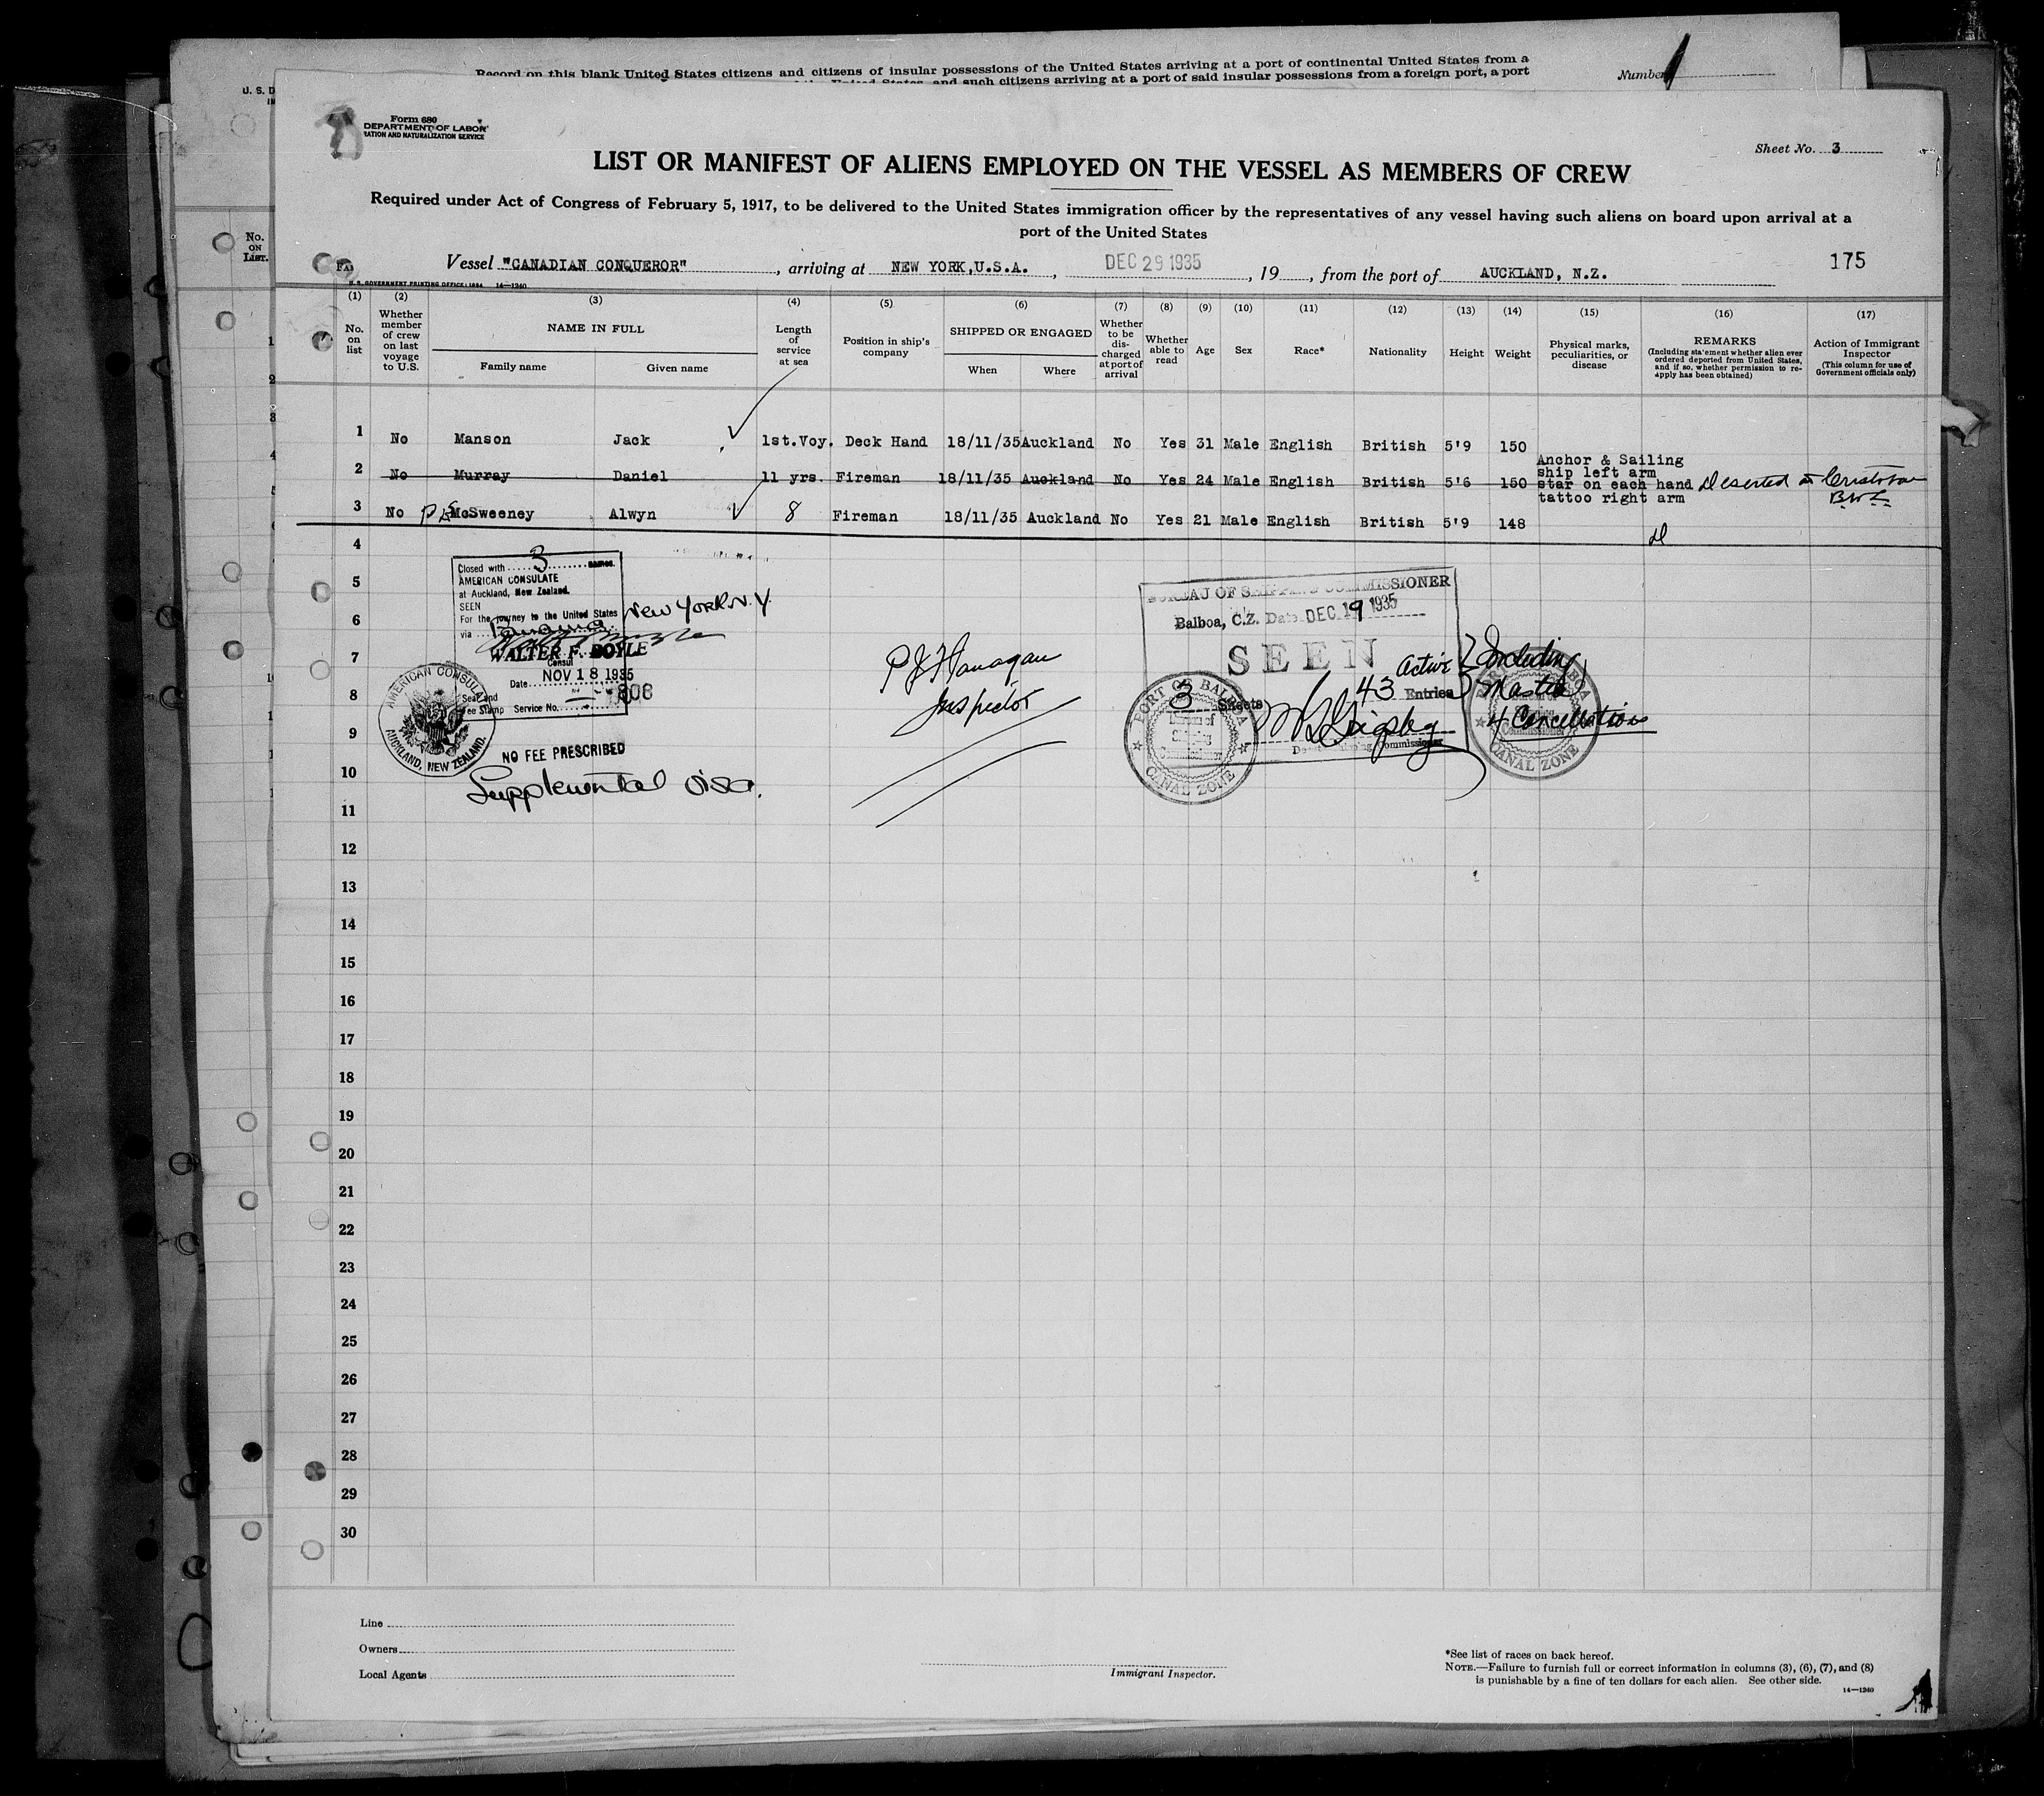 Record on this blank United States citizens and citizens of insular possessions of the United States arriving at a port of continental United States from a
and such citizens arriving at a port of said insular possessions from a foreign port, a port
Number
U. S. D
Form 680
DEPARTMENT OF LABOR
RATION AND NATURALIZATION SERVICE
Sheet No. 3
LIST OR MANIFEST OF ALIENS EMPLOYED ON THE VESSEL AS MEMBERS OF CREW
Required under Act of Congress of February 5, 1917, to be delivered to the United States immigration officer by the representatives of any vessel having such aliens on board upon arrival at a
port of the United States
No. ON LIST.
Vessel "CANADIAN CONQUEROR", arriving at NEW YORK, U.S.A., DEC 29 1935, 19, from the port of AUCKLAND, N.Z.
175
U. S. GOVERNMENT PRINTING OFFICE: 1934 14—1240
(1) (2) (3) (4) (5) (6) (7) (8) (9) (10) (11) (12) (13) (14) (15) (16) (17)
No. on list
Whether member of crew on last voyage to U.S.
NAME IN FULL
Family name
Given name
Length of service at sea
Position in ship's company
SHIPPED OR ENGAGED
When
Where
Whether to be discharged at port of arrival
Whether able to read
Age
Sex
Race*
Nationality
Height
Weight
Physical marks, peculiarities, or disease
REMARKS
(Including statement whether alien ever ordered deported from United States, and if so, whether permission to re-apply has been obtained)
Action of Immigrant Inspector
(This column for use of Government officials only)
1 No Manson Jack 1st.Voy. Deck Hand 18/11/35 Auckland No Yes 31 Male English British 5'9 150
2 No Murray Daniel 11 yrs. Fireman 18/11/35 Auckland No Yes 24 Male English British 5'6 150 Anchor & Sailing ship left arm star on each hand tattoo right arm Deserted at Cristobal
3 No McSweeney Alwyn 8 Fireman 18/11/35 Auckland No Yes 21 Male English British 5'9 148
4
5
6
7
8
9
10
11
12
13
14
15
16
17
18
19
20
21
22
23
24
25
26
27
28
29
30
Closed with 3 names.
AMERICAN CONSULATE
at Auckland, New Zealand.
SEEN
For the journey to the United States New York N.Y.
via Panama
WALTER F. BOYLE
Consul
Date NOV 18 1935
Seal and
Fee Stamp Service No. 808
AMERICAN CONSULATE
AUCKLAND, NEW ZEALAND.
NO FEE PRESCRIBED
Supplemental visa.
P J Flanagan
Inspector
BUREAU OF SHIPPING COMMISSIONER
Balboa, C.Z. Date DEC 19 1935
SEEN
3 Sheets 43 Active Entries
Including
Master
4 Cancellations
Deputy Shipping Commissioner
PORT OF BALBOA
CANAL ZONE
PORT OF BALBOA
CANAL ZONE
Line
Owners
Local Agents
Immigrant Inspector.
*See list of races on back hereof.
NOTE.—Failure to furnish full or correct information in columns (3), (6), (7), and (8)
is punishable by a fine of ten dollars for each alien. See other side.
14—1240